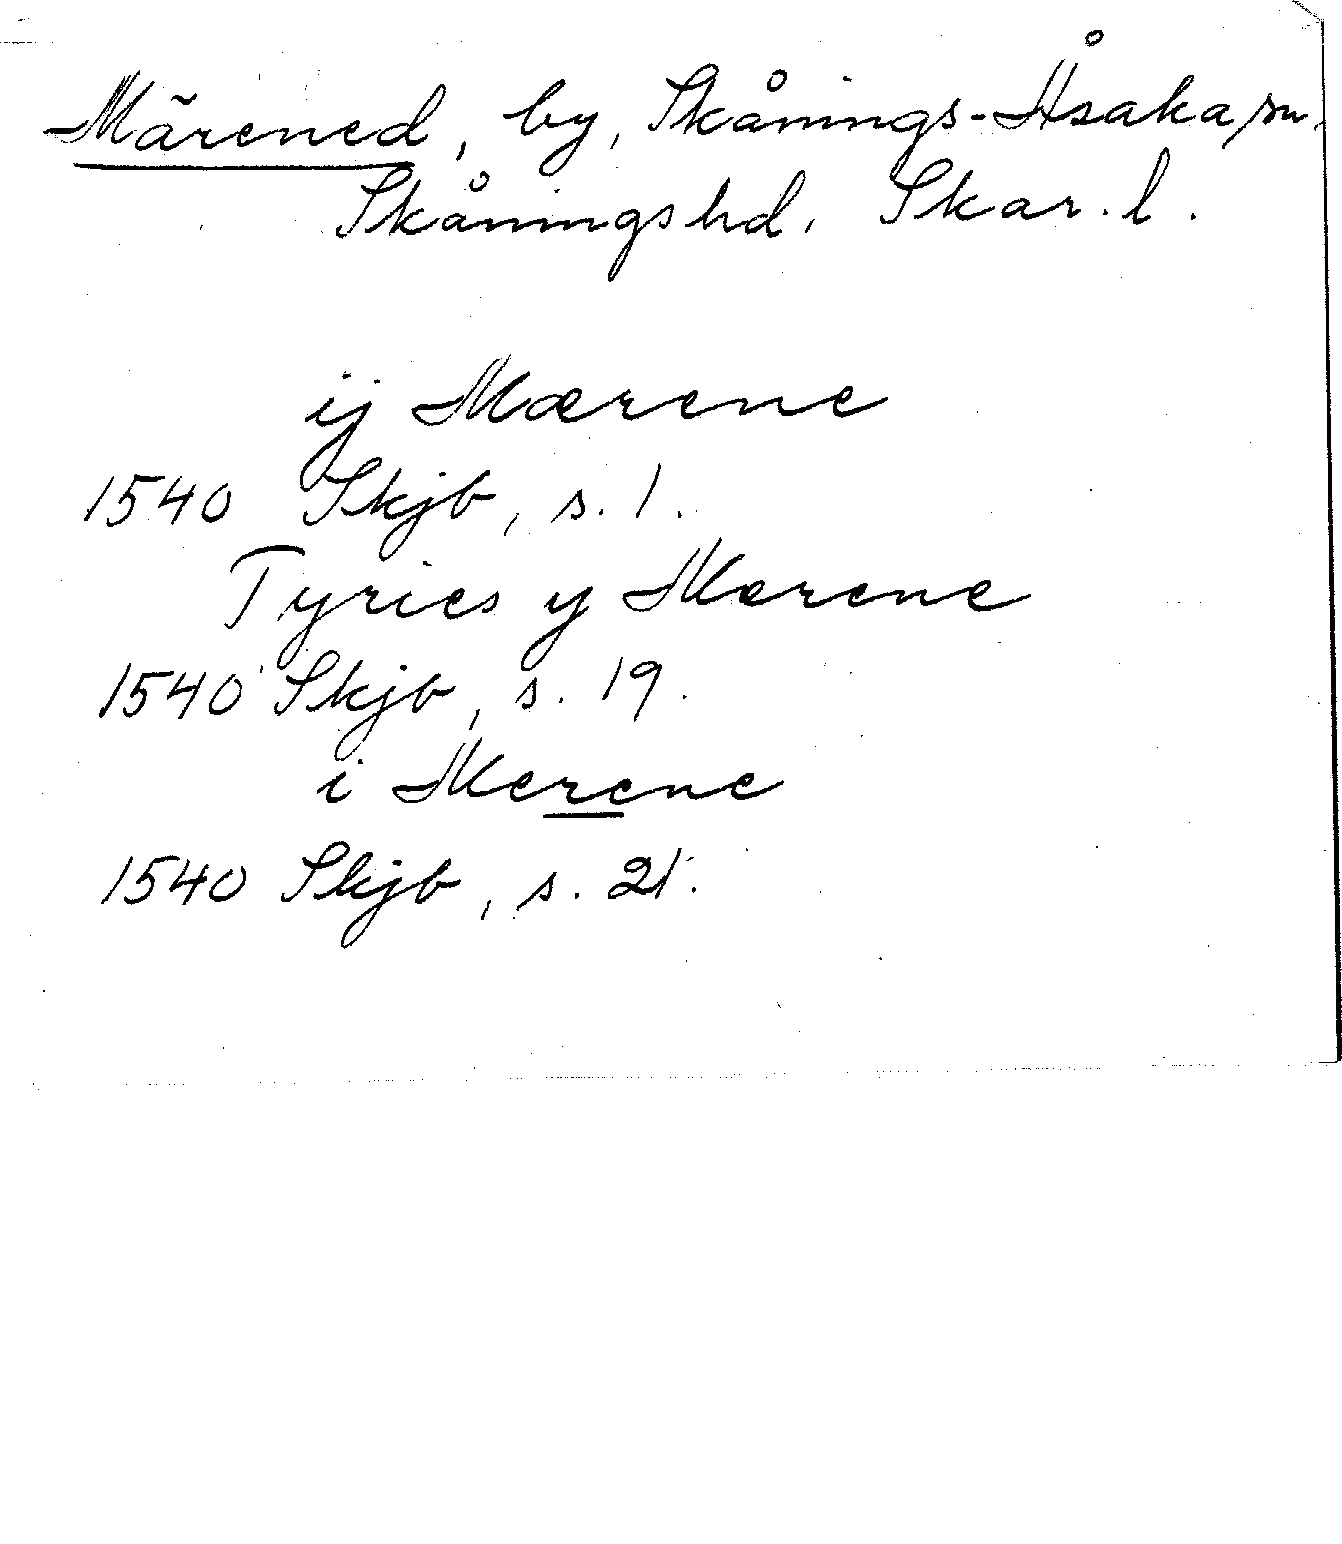 Märened, by, Skånings-Åsaka sn.
Skånings hd. Skar. l.
ij Mærene
1540 Skjb, s. 1.
Tyries y Mærene
1540 Skjb, s. 19.
i Merene
1540 Skjb, s. 21.